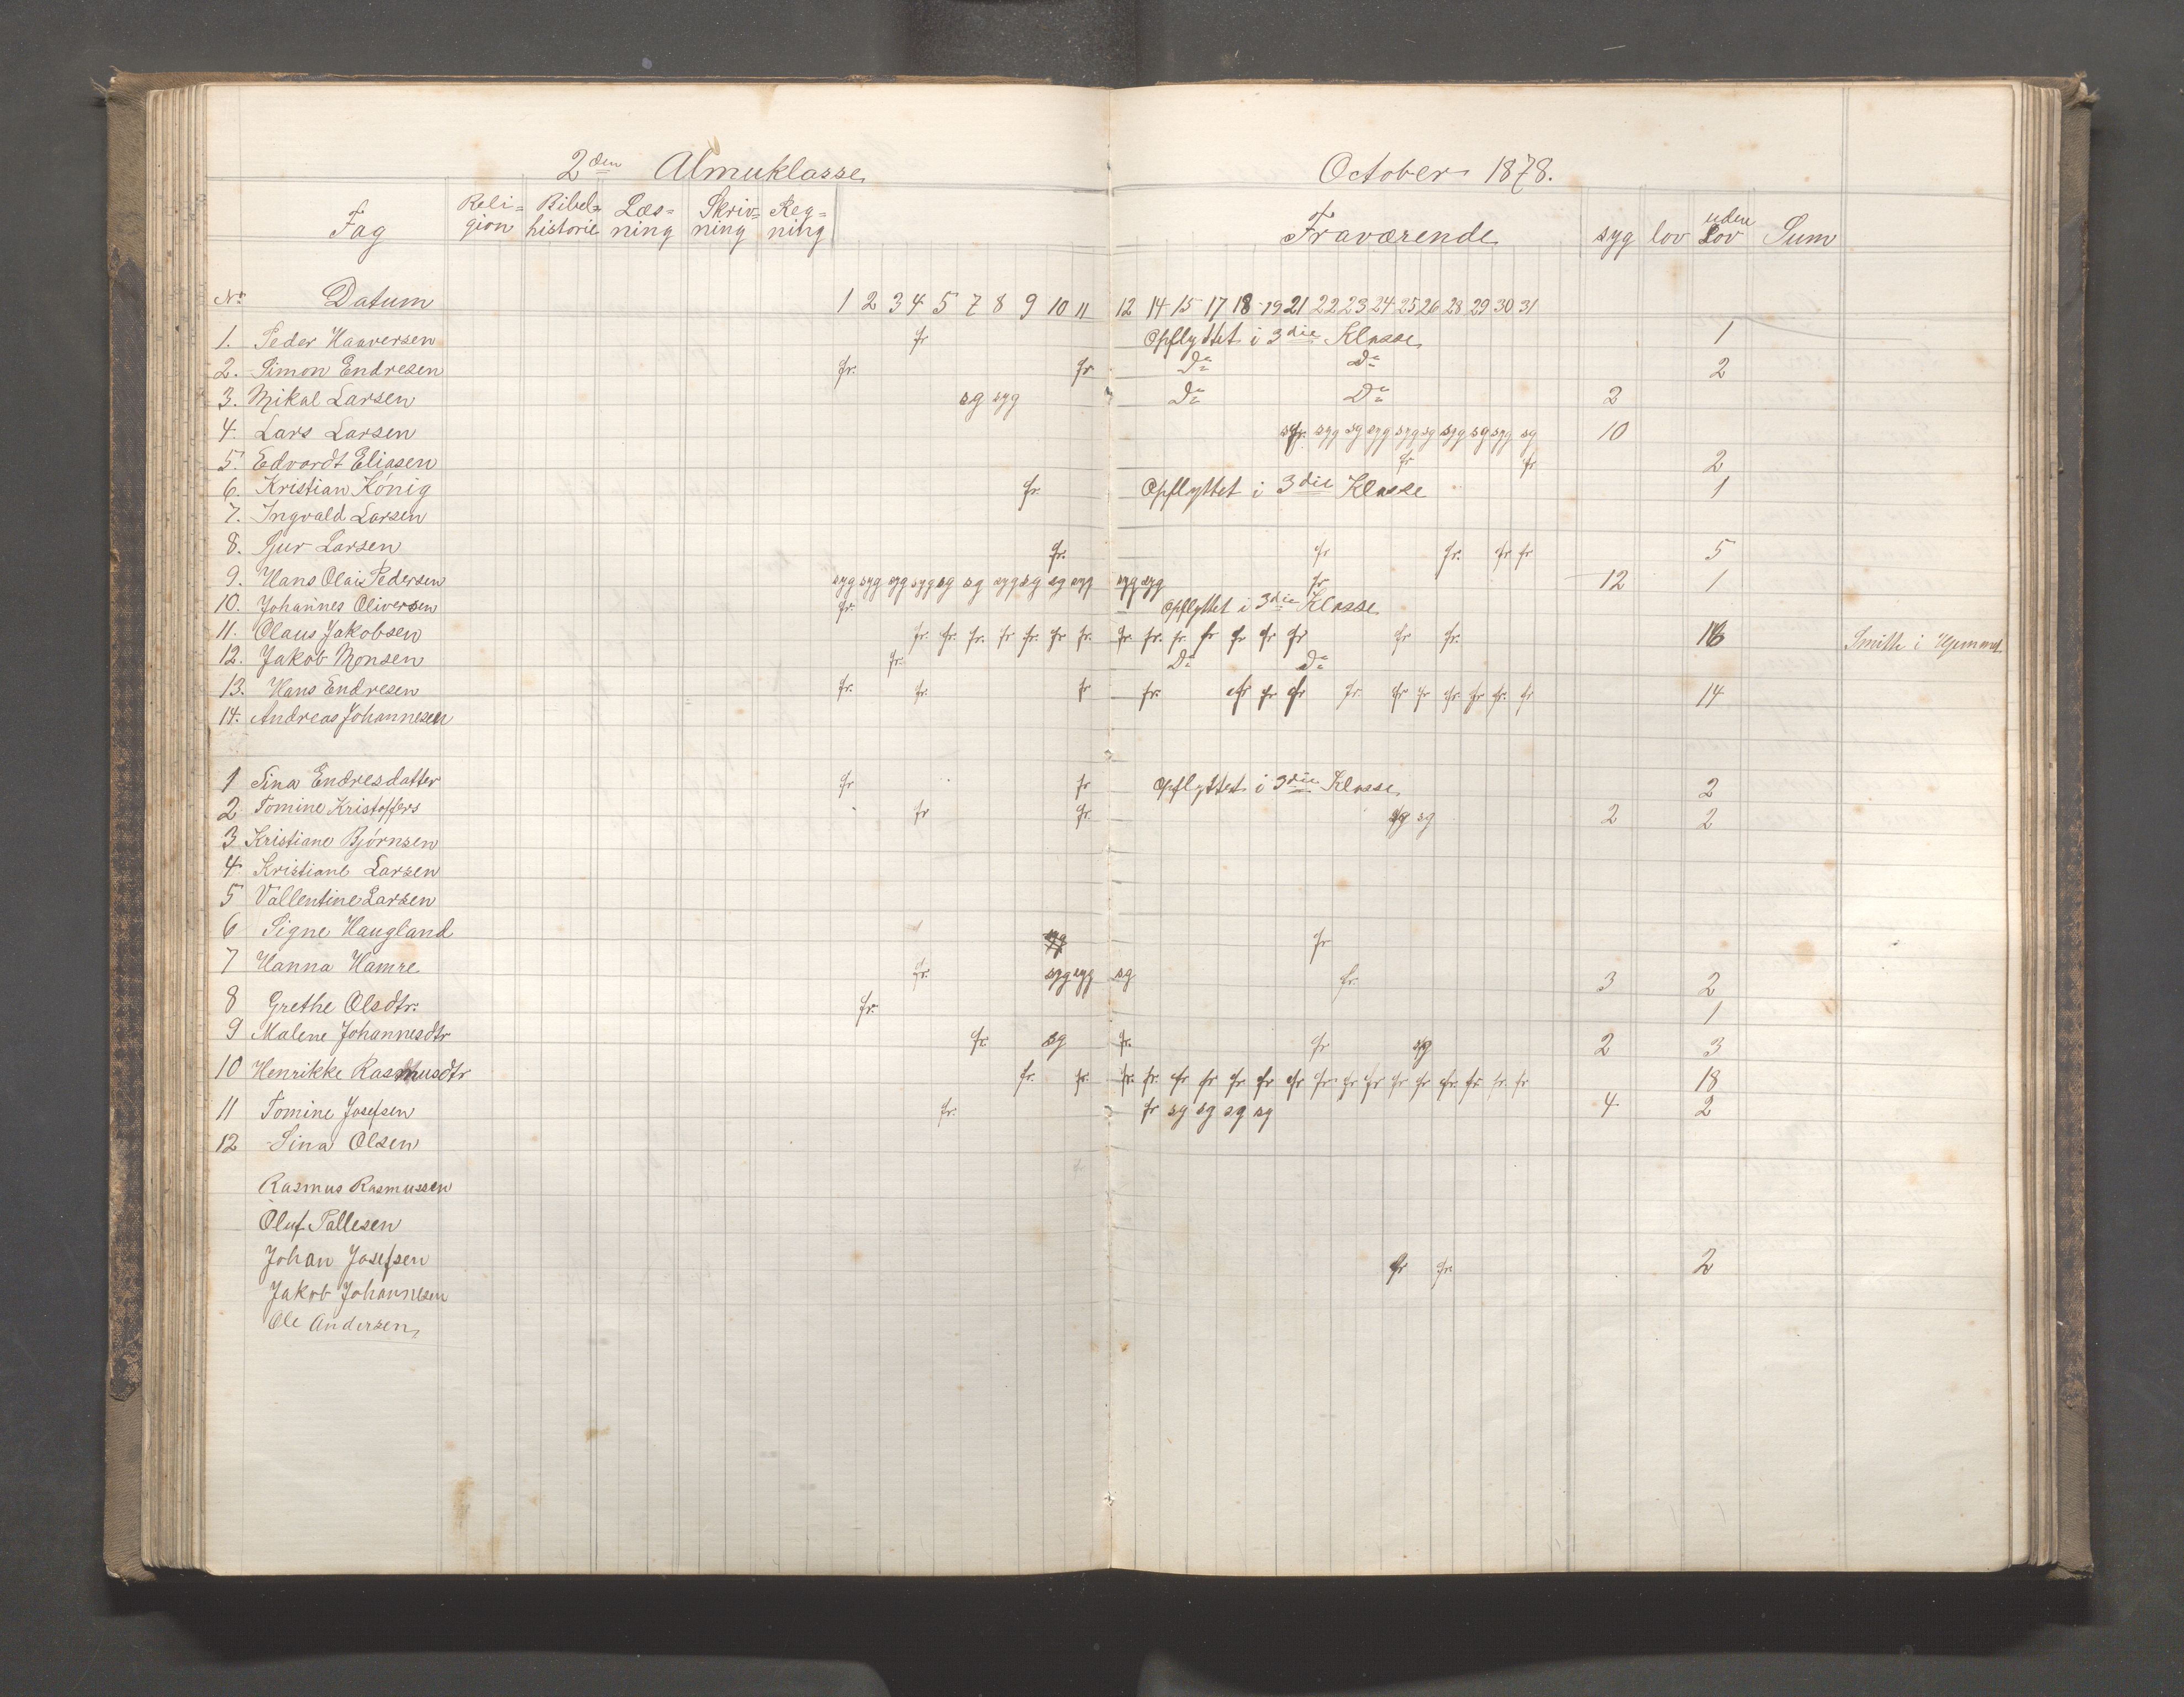 2den Almuklasse October 1878.
Fag Reli= gion Bibel= historie Læs= ning Skriv= ning Reg= ning Fraværende syg lov uden Lov Sum
No Datum 1 2 3 4 5 7 8 9 10 11 12 14 15 17 18 19 21 22 23 24 25 26 28 29 30 31
1. Peder Haaversen fr Opflyttet i 3die Klasse 1
2. Simon Endresen fr. fr Do Do 2
3. Mikal Larsen sg syg Do Do 2
4. Lars Larsen syg sg syg syg sg syg sg syg sg 10
5. Edvardt Eliasen fr fr 2
6. Kristian König fr. Opflyttet i 3die Klasse 1
7. Ingvald Larsen
8. Sjur Larsen fr. fr fr. fr fr 5
9. Hans Olais Pedersen syg syg syg syg sg sg syg sg sg syg syg syg fr 12 1
10. Johannes Oliversen fr. Opflyttet i 3die Klasse
11. Olaus Jakobsen fr. fr. fr. fr fr. fr fr. fr. fr. fr. fr fr fr fr fr fr. 16 Smith i Hjemmet.
12. Jakob Monsen fr. Do Do
13. Hans Endresen fr. fr. fr fr. fr fr fr fr. fr fr fr. fr fr. fr 14
14. Andreas Johannesen
1 Sina Endresdatter fr fr Opflyttet i 3die Klasse 2
2 Tomine Kristoffers fr fr. sg sg 2 2
3 Kristiane Bjørnsen
4 Kristiane Larsen
5 Vallentine Larsen
6 Signe Haugland fr
7 Hanna Hamre fr. syg syg sg fr. 3 2
8 Grethe Olsdtr. fr. 1
9 Malene Johannesdtr fr. sg fr. fr sg 2 3
10 Henrikke Rasmusdtr fr. fr. fr. fr. fr fr fr. fr fr fr. fr fr fr fr fr. fr fr. fr 18
11 Tomine Josefsen fr. fr sg sg sg sg 4 2
12 Sina Olsen
Rasmus Rasmussen
Oluf Pallesen
Johan Josefsen fr fr. 2
Jakob Johannesen
Ole Andersen,